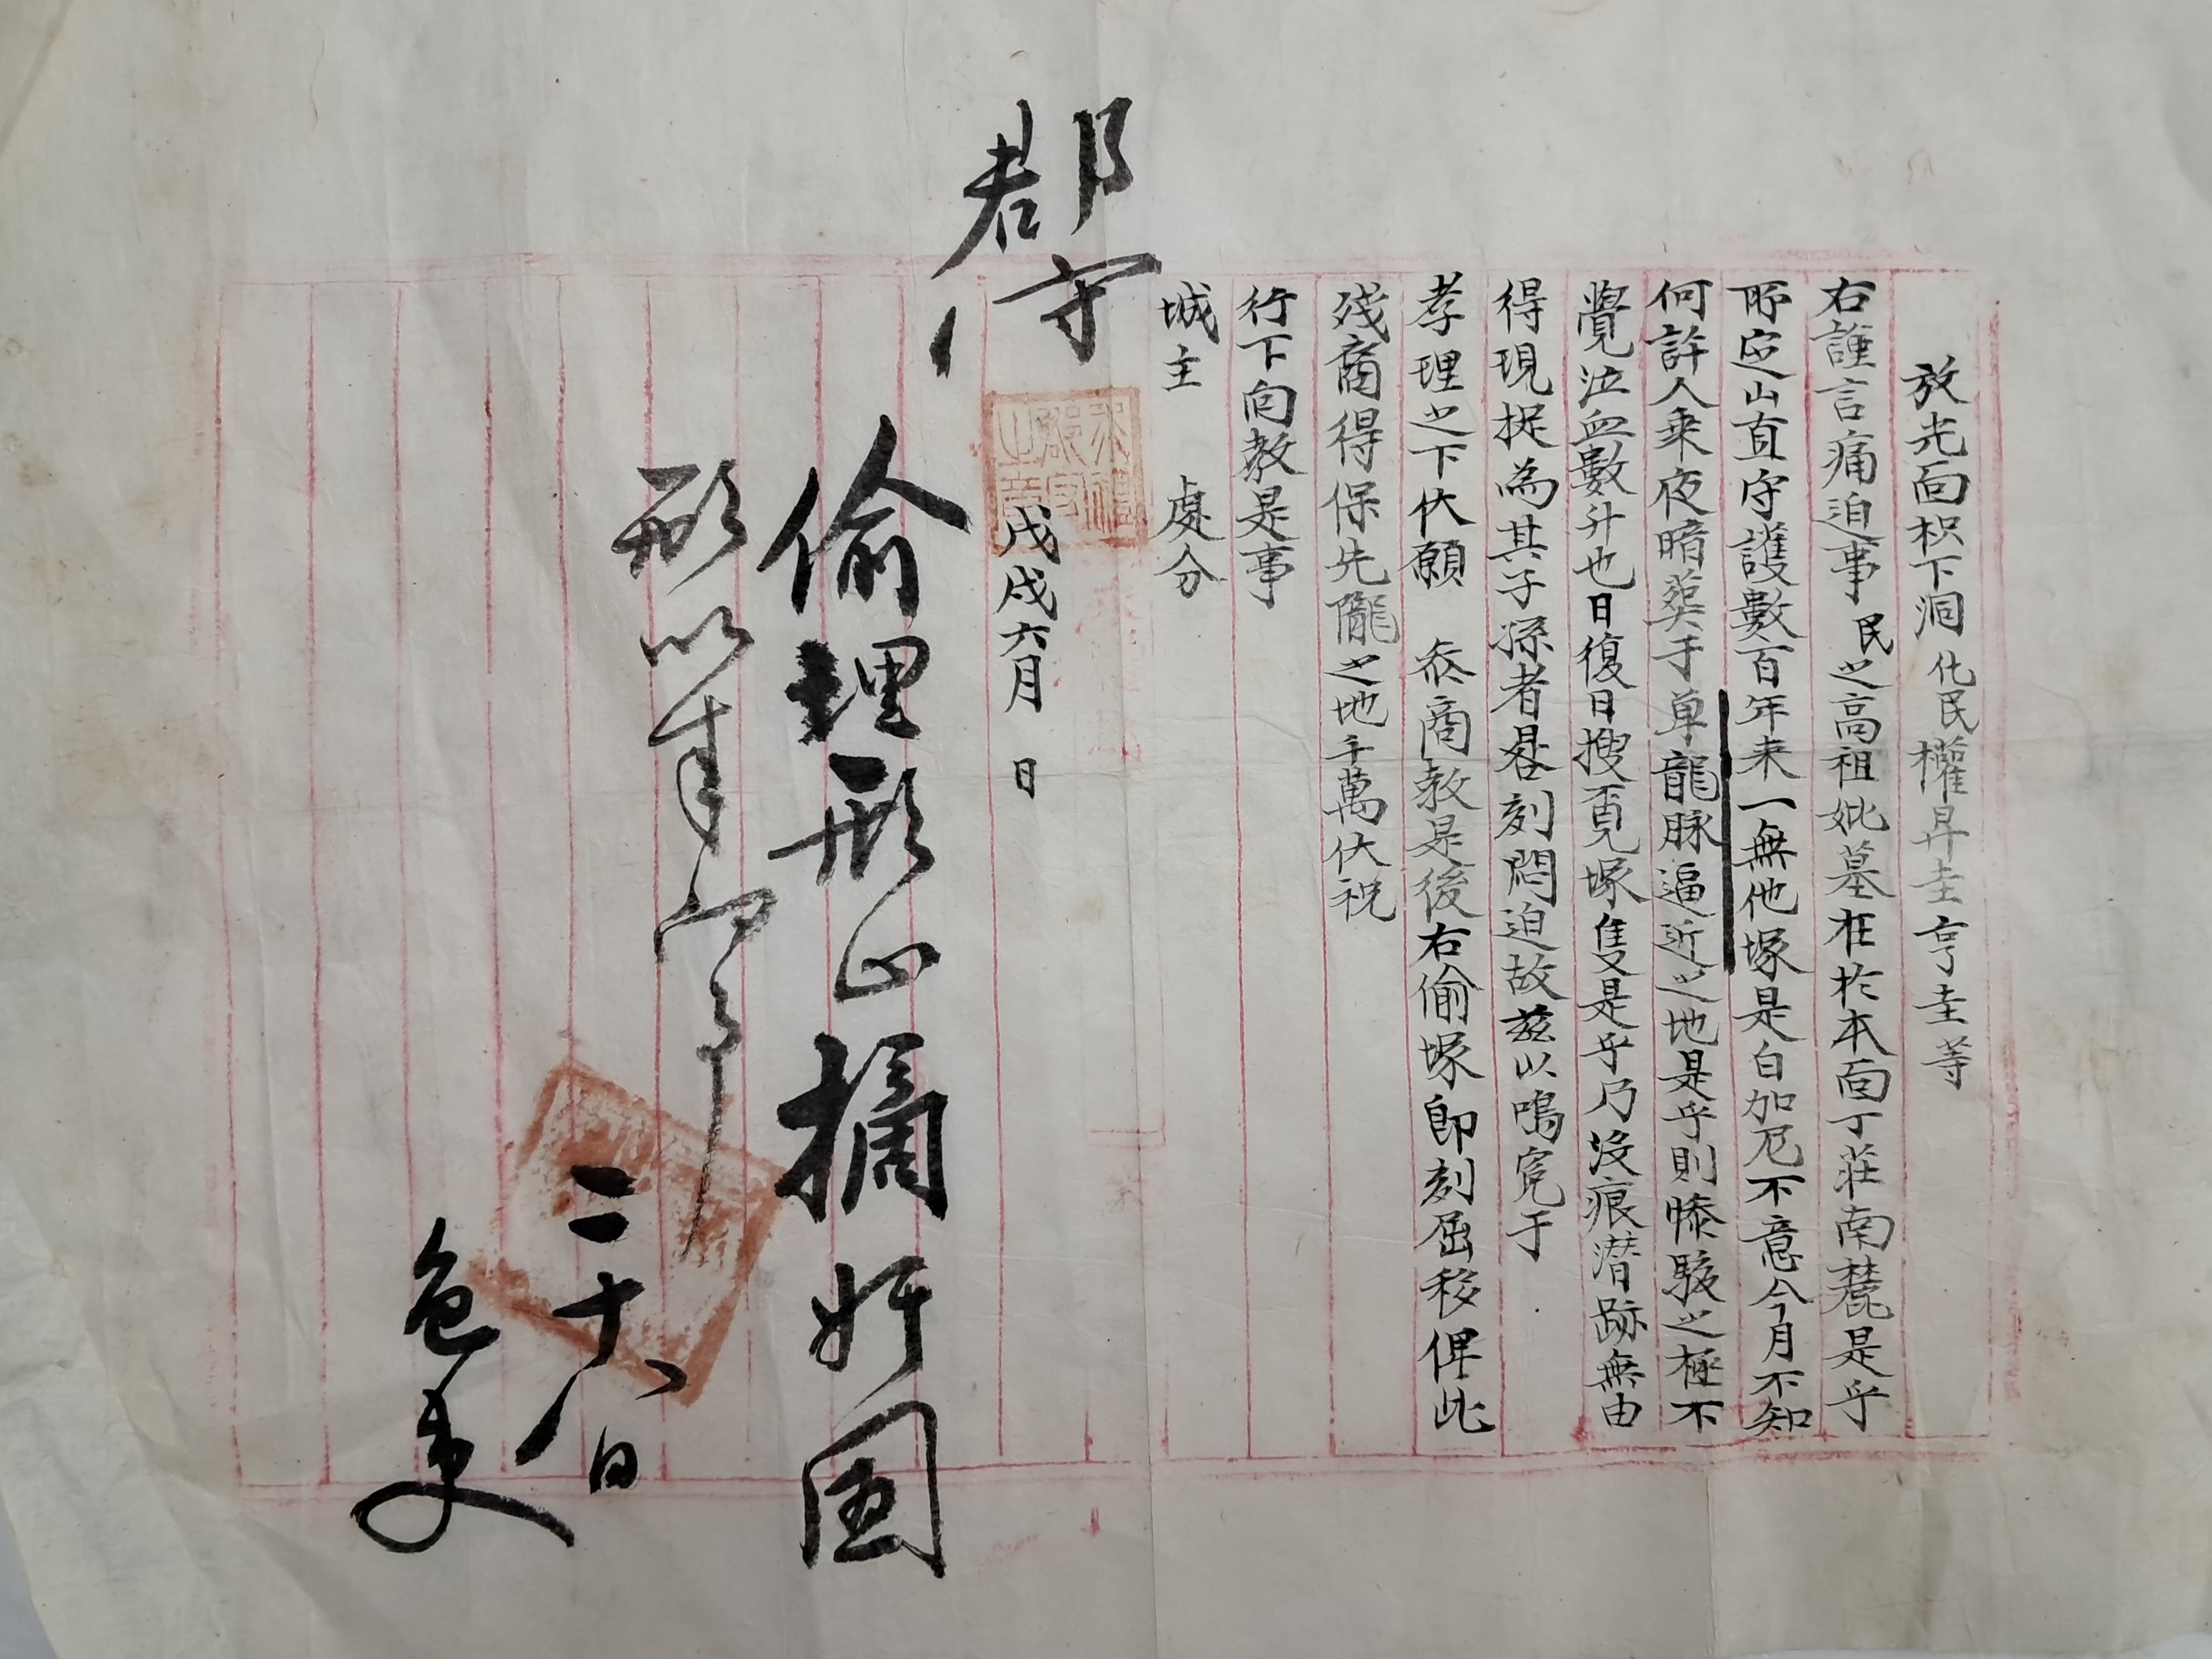 放光面枳下洞化民權昇圭亨圭等
右謹言痛迫事民之高祖妣墓在於本面丁莊南麓是乎
所定山直守護數百年来一無他塚是白加尼不意今月不知
何許人乘夜暗葬于單龍脉逼近之地是乎則慘駭之極不
覺泣血數升也日復日搜覓塚隻是乎乃沒痕潛跡無由
得現捉為其子孫者晷刻悶迫故玆以鳴冤于
孝理之下伏願 叅商敎是後右偷塚卽刻屈移俾此
殘裔得保先隴之地千萬伏祝
行下向敎是事
城主 處分
戊戌六月 日
郡守
偷埋形止摘奸圖
形以来向事
二十八日
色吏